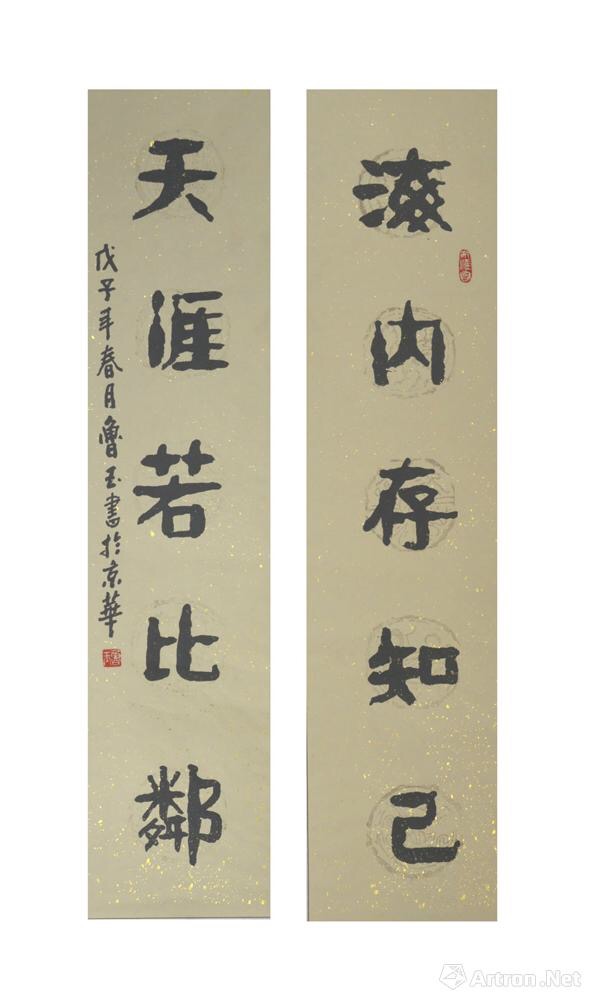 海内存知己
天涯若比鄰
戊子年春月魯玉書於京華
Artron.Net